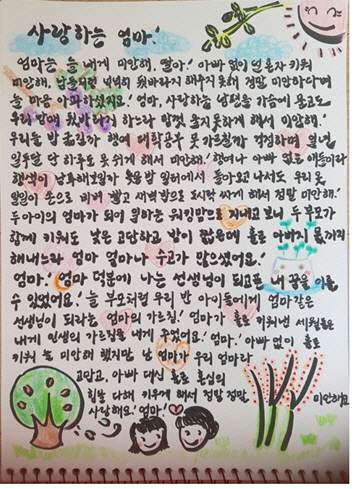 사랑하는 엄마!
엄마는 늘 내게 미안해, 딸아! 아빠 없이 널 혼자 키워
미안해, 남들처럼 넉넉히 뒷바라지 해주지 못해 정말 미안하다며
늘 마음 아파하셨지요! 엄마, 사랑하는 남편을 가슴에 묻고도
우리 땜에 뒷바라지 하느라 맘껏 울지 못하게 해서 미안해!
우리들 밥 굶길까 행여 대학공부 못 가르칠까 걱정하며 일년
일주일 단 하루도 못 쉬게 해서 미안해! 행여나 아빠 없는 애들이라
행실이 남루해보일까 늦은 밤 일터에서 돌아오고 나서도 우리 옷
일일이 손으로 비벼 빨고 새벽밥으로 도시락 싸게 해서 정말 미안해!
두아이의 엄마가 되어 일하는 워킹맘으로 지내고 보니 두 부모가
함께 키워도 낮은 고단하고 밤이 짧은데 홀로 아빠의 몫까지
해내느라 엄마 얼마나 수고가 많으셨어요!
엄마! 엄마 덕분에 나는 선생님이 되고픈 내 꿈을 이룰
수 있었어요! 늘 부모처럼 우리 반 아이들에게 엄마같은
선생님이 되라는 엄마의 가르침! 엄마가 홀로 키워낸 세월들은
내게 인생의 가르침을 내게 주었어요! 엄마! 아빠 없이 홀로
키워 늘 미안해 했지만 난 엄마가 우리 엄마라
고맙고, 아빠 대신 홀로 혼신의
힘을 다해 키우게 해서 정말 정말 미안해요
사랑해요! 엄마!